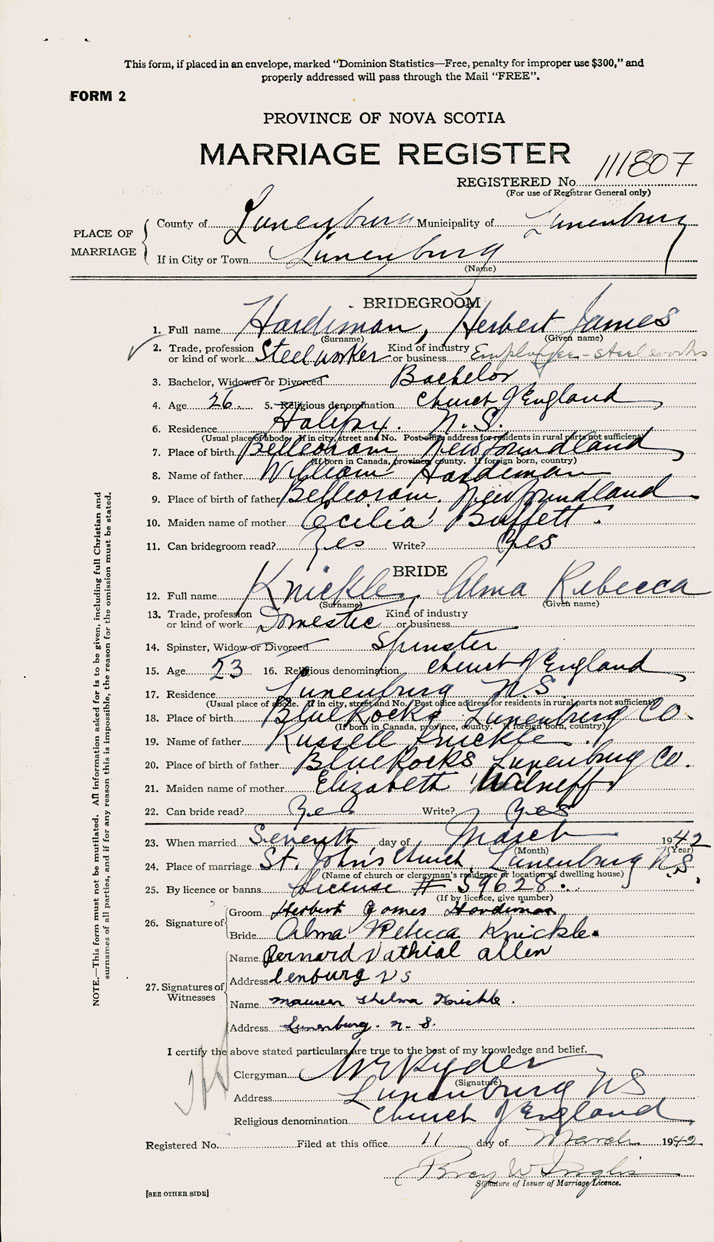 This form, if placed in an envelope, marked "Dominion Statistics—Free, penalty for improper use $300," and
properly addressed will pass through the Mail "FREE".
FORM 2
PROVINCE OF NOVA SCOTIA
MARRIAGE REGISTER
REGISTERED No. 111807
(For use of Registrar General only)
PLACE OF MARRIAGE
County of Lunenburg Municipality of Lunenburg
If in City or Town Lunenburg
(Name)
BRIDEGROOM
1. Full name Hardiman, Herbert James
(Surname) (Given name)
2. Trade, profession or kind of work Steelworker Kind of industry or business Employee - steelworks
3. Bachelor, Widower or Divorced Bachelor
4. Age 26 5. Religious denomination Church of England
6. Residence Halifax. N.S.
(Usual place of abode. If in city, street and No. Post office address for residents in rural parts not sufficient)
7. Place of birth Belleoram Newfoundland
(If born in Canada, province, county. If foreign born, country)
8. Name of father William Hardiman
9. Place of birth of father Belleoram. Newfoundland
10. Maiden name of mother Cecilia Buffett.
11. Can bridegroom read? Yes Write? Yes
BRIDE
12. Full name Knickle, Alma Rebecca
(Surname) (Given name)
13. Trade, profession or kind of work Domestic Kind of industry or business
14. Spinster, Widow or Divorced Spinster
15. Age 23 16. Religious denomination Church of England
17. Residence Lunenburg N.S.
(Usual place of abode. If in city, street and No. Post office address for residents in rural parts not sufficient)
18. Place of birth Blue Rocks Lunenburg Co.
(If born in Canada, province, county. If foreign born, country)
19. Name of father Russell Knickle.
20. Place of birth of father Blue Rocks Lunenburg Co.
21. Maiden name of mother Elizabeth
22. Can bride read? Yes Write? Yes
23. When married Seventh day of March 1942
(Month) (Year)
24. Place of marriage St. John's Church, Lunenburg N.S.
(Name of church or clergyman's residence or location of dwelling house)
25. By licence or banns License # 59628.
(If by licence, give number)
26. Signature of
Groom Herbert James Hardiman
Bride Alma Rebecca Knickle.
27. Signatures of Witnesses
Name Bernard Vathial Allen
Address lenburg NS
Name Maureen Thelma Knickle.
Address Lunenburg. N.S.
I certify the above stated particulars are true to the best of my knowledge and belief.
Clergyman Ryder
(Signature)
Address Lunenburg NS
Religious denomination Church of England
Registered No. Filed at this office 11 day of March 1942
Inglis
Signature of Issuer of Marriage Licence.
[SEE OTHER SIDE]
NOTE.—This form must not be mutilated. All information asked for is to be given, including full Christian and
surnames of all parties, and if for any reason this is impossible, the reason for the omission must be stated.